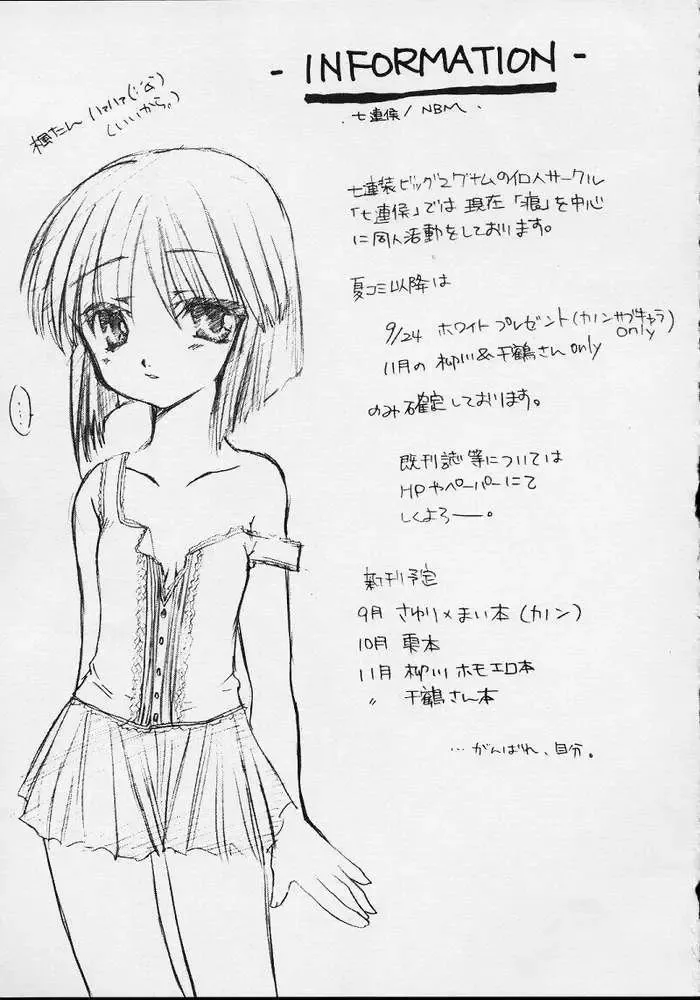 - INFORMATION -
七連侯 / NBM
楓たん ハァハァ(;´Д`)
(いいから。)
七連装ビッグマグナムの個人サークル
「七連侯」では現在「痕」を中心
に同人活動をしております。
夏コミ以降は
9/24 ホワイトプレゼント(カノンサブキャラ)only
11月の 柳川&千鶴さん only
のみ確定しております。
既刊誌等については
HPやペーパーにて
しくよろー。
…
新刊予定
9月 さゆり×まい本(カノン)
10月 栞本
11月 柳川 ホモエロ本
〃 千鶴さん本
…がんばれ、自分。